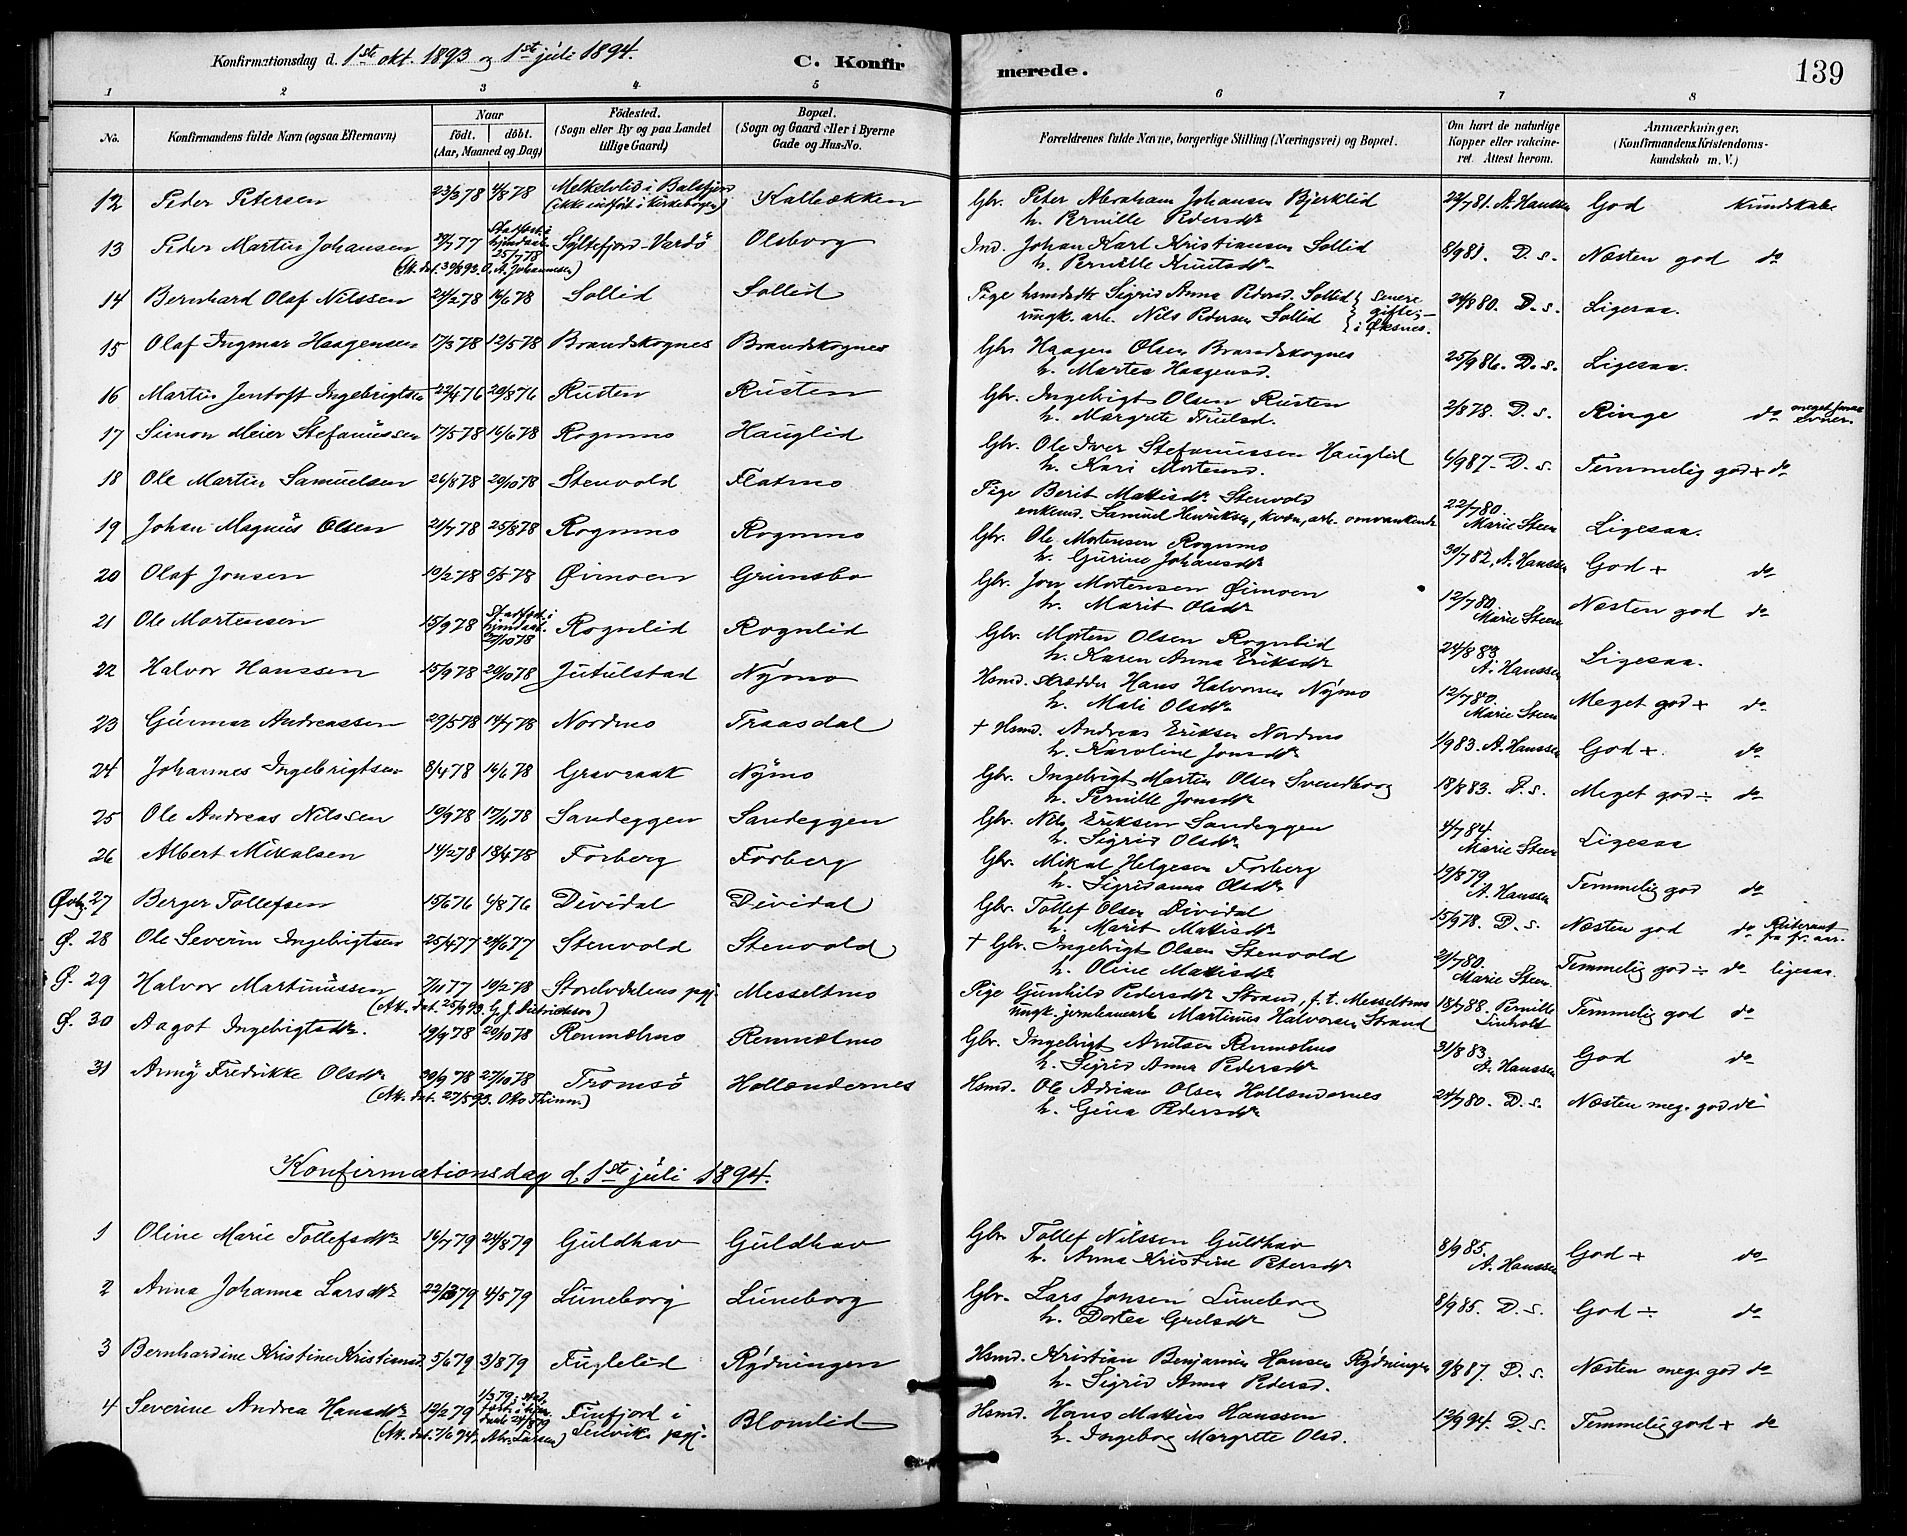 Konfirmationsdag d. 1ste okt. 1893 og 1ste juli 1894.
C. Konfirmerede.
139
1 2 3 4 5 6 7 8
No.
Konfirmandens fulde Navn (ogsaa Efternavn)
Naar
födt. döbt.
(Aar, Maaned og Dag)
Födested.
(Sogn eller By og paa Landet
tillige Gaard)
Bopæl.
(Sogn og Gaard eller i Byerne
Gade og Hus-No.
Forældrenes fulde Navne, borgerlige Stilling (Næringsvei) og Bopæl.
Om havt de naturlige
Kopper eller vakcine-
ret. Attest herom.
Anmærkninger.
(Konfirmandens Kristendoms-
kundskab m. V.)
12 Peder Petersen 23/3 78 4/8 78 Melkelvlid i Balsfjord Kalbækken Gbr. Peter Abraham Johansen Bjerklid 22/7 81. A. Hanssen God kundskab
(ikke indført i kirkebogen) h. Pernille Pedersdtr
13 Peder Martin Johansen 77 Stadfæst i hjemdaab 25/7 78 Syltefjord - Vardö Olsborg Ind. Johan Karl Kristiansen Sollid 8/9 81. D. s. Næsten god do
(At. dat. 30/8 93. O. A. Johannesen) h. Pernille Knutsdtr
14 Bernhard Olaf Nilssen 24/2 78 16/6 78 Sollid Sollid Pige hsmdsdtr Sigrid Anna Pedersd. Sollid } senere 24/8 80. D. s. Ligesaa.
ungk. arb. Nils Pedersen Sollid } gifte, i Øksnes.
15 Olaf Ingmar Haagensen 17/3 78 12/5 78 Brandskognes Brandskognes Gbr. Haagen Olsen Brandskognes 25/9 86. D. s. Ligesaa.
h. Martea Haagensd.
16 Martin Jentoft Ingebrigtsen 22/4 76 20/8 76 Rusten Rusten Gbr. Ingebrigt Olsen Rusten 2/8 78. D. s. Ringe do meget smaa evner
h. Margrete Trulsd.
17 Simon Meier Stefanussen 17/5 78 16/6 78 Rognmo Hauglid Gbr. Ole Iver Stefanussen Hauglid 6/9 87. D. s. Temmelig god + do
h. Kari Mortensd.
18 Ole Martin Samuelsen 26/8 78 20/10 78 Stenvold Flatmo Pige Berit Matisdtr Stenvold 22/7 80. Marie Steen Ligesaa.
enkemd. Samuel Henriksen, kvæn, arb. omvankende
19 Johan Magnus Olsen 21/7 78 25/8 78 Rognmo Rognmo Gbr. Ole Mortensen Rognmo 30/7 82, A. Hanssen God + do
h. Gurine Johansdtr
20 Olaf Jonsen 10/2 78 5/5 78 Øimoen Grimsbo Gbr. Jon Mortensen Øimoen 12/7 80. Marie Steen Næsten god do
h. Marit Olsdtr
21 Ole Mortensen 15/9 78 Stadfæst i hjemdaab 27/10 78 Rognlid Rognlid Gbr. Morten Olsen Rognlid 24/8 83. A. Hanssen Ligesaa.
h. Karen Anna Eriksdtr
22 Halvor Hanssen 15/9 78 20/10 78 Jutulstad Nymo Hsmd. skrædder Hans Halvorsen Nymo 12/7 80. Marie Steen Meget god + do
h. Mali Olsdtr
23 Gunnar Andreassen 29/5 78 14/7 78 Nordmo Traasdal † Hsmd. Andreas Eriksen Nordmo 1/9 83. A. Hanssen God +. do
h. Karoline Jonsdtr
24 Johannes Ingebrigtsen 8/4 78 16/6 78 Gravraak Nymo Gbr. Ingebrigt Morten Olsen Svendborg 18/8 83. D. s. Meget god ÷ do
h. Pernille Jonsdtr
25 Ole Andreas Nilssen 10/9 78 17/11 78 Sandeggen Sandeggen Gbr. Nils Eriksen Sandeggen 4/7 84. Marie Steen Ligesaa
h. Sigrid Olsdtr
26 Albert Mikalsen 14/2 78 18/4 78 Forberg Forberg Gbr. Mikal Helgesen Forberg 19/8 79. A. Hanssen Temmelig god do
h. Sigridanna Olsdtr
Øvbg. 27 Berger Tollefsen 15/6 76 4/8 76 Dividal Dividal Gbr. Tollef Olsen Dividal 15/9 78. D. s. Næsten god do Reiterant fra fr. aar.
h. Marit Matisdtr
Ø. 28 Ole Severin Ingebrigtsen 25/4 77 24/6 77 Stenvold Stenvold † Gbr. Ingebrigt Olsen Stenvold 21/7 80. Marie Steen Temmelig god ÷ do ligesaa.
h. Oline Matisdtr
Ø. 29 Halvor Martinussen 7/11 77 10/2 78 Storelvdalens pgj. Messeltmo Pige Gunhild Pedersdtr Strand, f. t. Messeltmo 18/7 88. Pernille Linhold Temmelig god do
(At. dat. 25/9 93. G. J. Dietrichson) ungk. jernbanearb. Martinus Halvorsen Strand
Ø. 30 Aagot Ingebrigtsdtr. 19/9 78 20/10 78 Renmælmo Renmælmo Gbr. Ingebrigt Arntsen Renmælmo 31/8 83. A. Hanssen God do
h. Sigrid Anna Pedersdtr
31 Anny Fredrikke Olsdtr 20/9 78 27/10 78 Tromsö Hollændernes Hsmd. Ole Adrian Olsen Hollændernes 24/7 80. D. s. Næsten meg. god do
(At. dat. 27/5 93. Oks Thinn) h. Gina Pedersdtr
Konfirmationsdag d. 1ste juli 1894.
1 Oline Marie Tollefsdtr 16/7 79 24/8 79 Guldhav Guldhav Gbr. Tollef Nilssen Guldhav 8/9 85. A. Hanssen God + do
h. Anna Kristine Petersdtr
2 Anna Johanna Larsdtr 22/3 79 4/5 79 Luneborg Luneborg Gbr. Lars Jonsen Luneborg 8/9 85. D. s. God ÷ do
h. Dortea Grelsdtr
3 Bernhardine Kristine Kristiansd. 5/6 79 3/8 79 Fuglelid Rydningen Hsmd. Kristian Benjamin Hansen Rydningen 9/8 87. D. s. Næsten meg. god do
h. Sigrid Anna Pedersd.
4 Severine Andrea Hansdtr 12/2 79 Finfjord i Lenviks pgj. Blomlid Hsmd. Hans Mathias Hanssen 12/9 94. D. s. Temmelig god + do
(At. dat. 7/6 94, Abr. Larsen) h. Ingeborg Margrete Olsd.